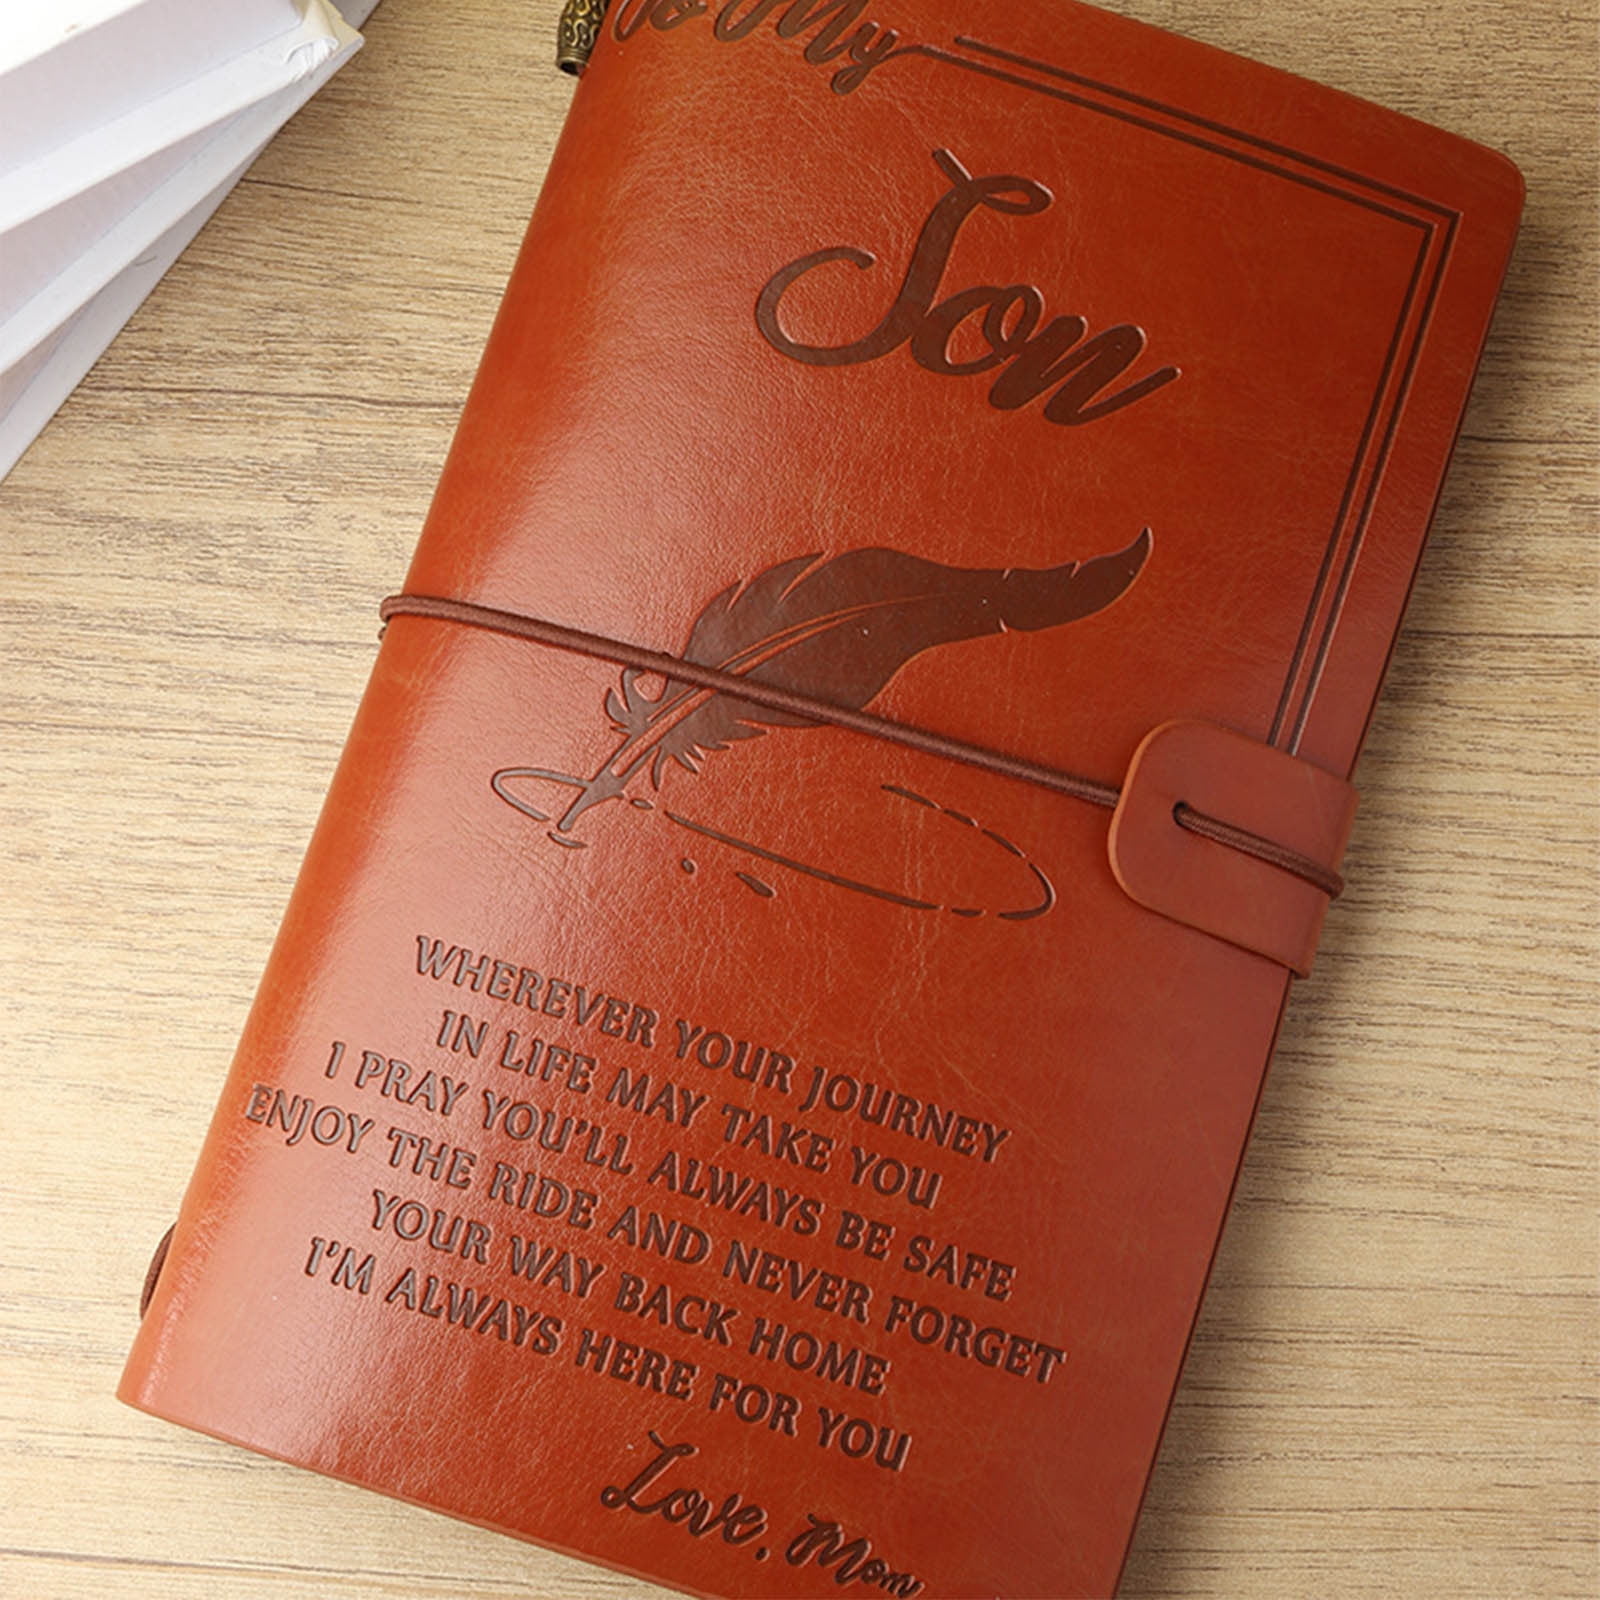 To My
Son
WHEREVER YOUR JOURNEY
IN LIFE MAY TAKE YOU
I PRAY YOU'LL ALWAYS BE SAFE
ENJOY THE RIDE AND NEVER FORGET
YOUR WAY BACK HOME
I'M ALWAYS HERE FOR YOU
Love, Mom